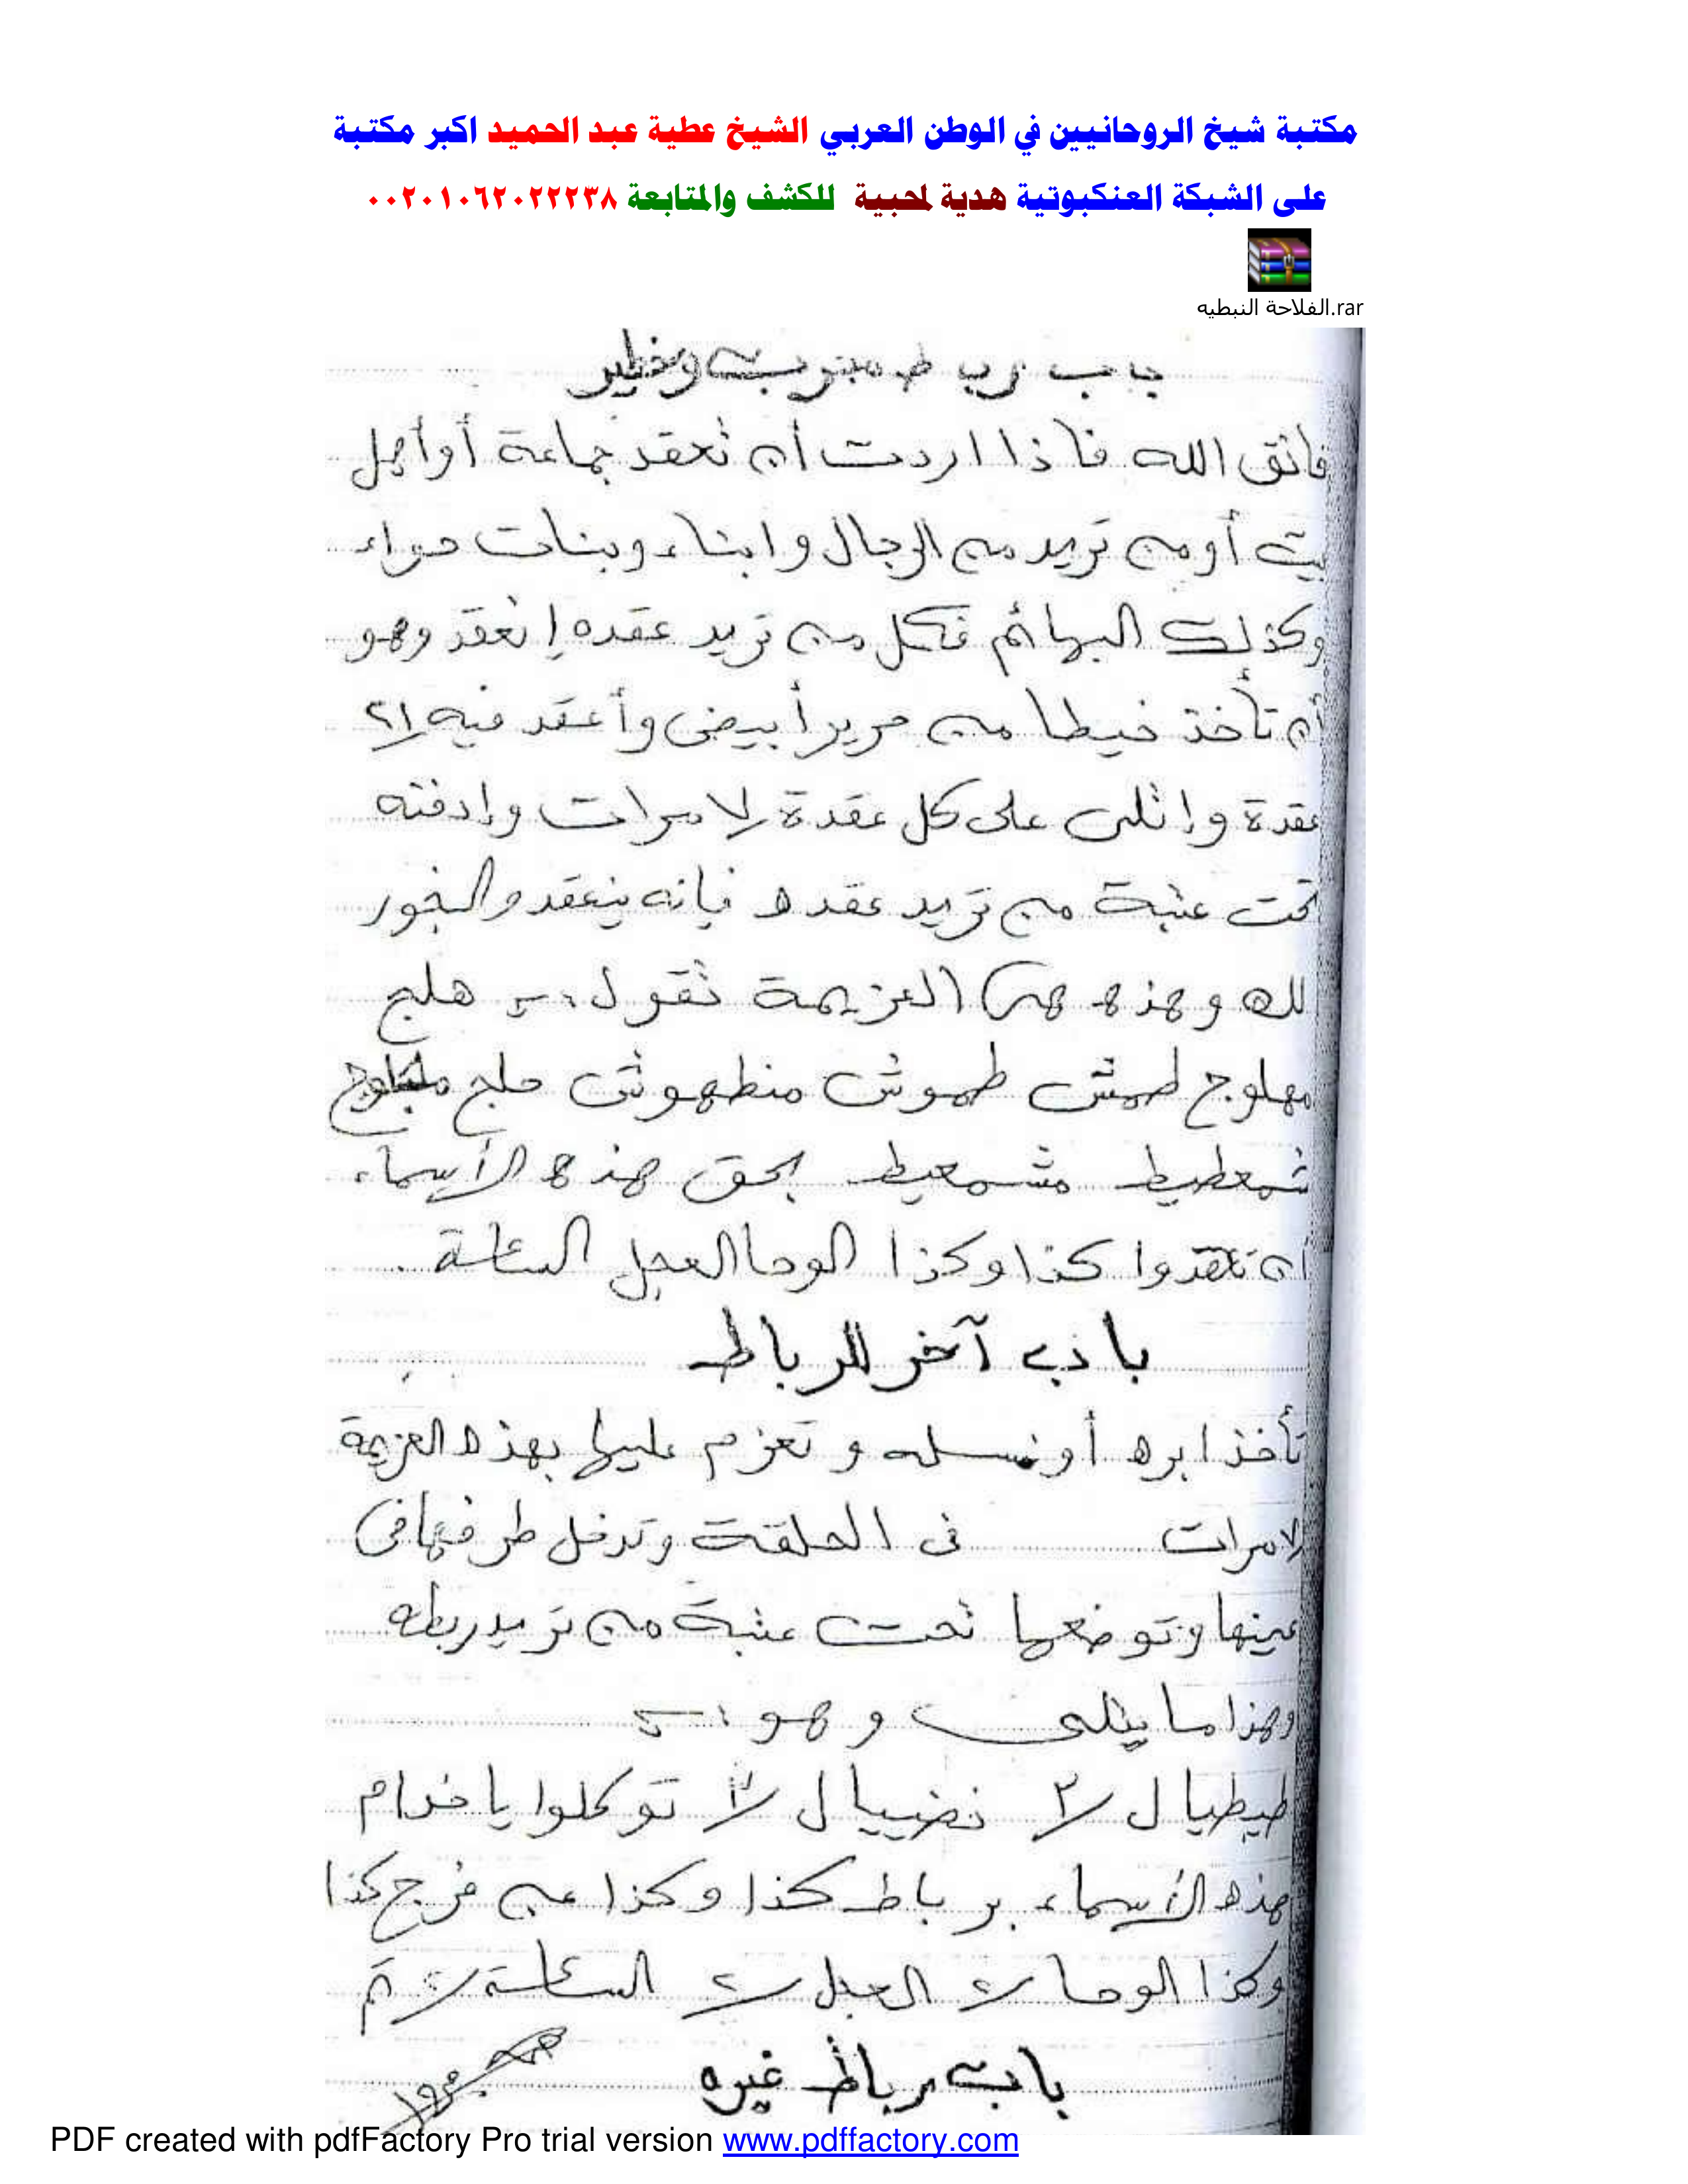 مكتبة شيخ الروحانيين في الوطن العربي الشيخ عطية عبد الحميد اكبر مكتبة
على الشبكة العنكبوتية هدية لمحبية للكشف والمتابعة ٠٠٢٠١٠٦٢٠٢٢٢٣٨
الفلاحة النبطيه.rar
باب رباط مجرب وخطير
فاتق الله فاذا اردت أن تعقد جماعة أو أهل
بيت أو من تريد من الرجال وابناء وبنات حواء
وكذلك البهائم فكل من تريد عقده إنعقد وهو
أن تأخذ خيطا من حرير أبيض وأعقد فيه ٢١
عقدة وإتلى على كل عقدة ٧ مرات وإدفنه
تحت عتبة من تريد عقده فإنه ينعقد والبخور
لك وهذه هى العزيمة تقول :- هلج
مهلوج طمش طموش منطهوش حلج
شمعطيط مشمعيط بحق هذه الأسماء
ان تعقدوا كذا وكذا الوحا العجل الساعة
باب آخر للرباط
تأخذ ابره أو مسله و تعزم عليها بهذه العزيمة
٧ مرات فى الحلقة وتدخل طرفها فى
عينها وتوضعها تحت عتبة من تريد ربطه
وهذا ما يتلى وهو :-
طيطيال ٣ نضييال توكلوا يا خدام
هذه الأسماء برباط كذا وكذا عن فرج كذا
وكذا الوحا ٢ العجل ٢ الساعة ٢ تم
باب رباط غيره
PDF created with pdfFactory Pro trial version www.pdffactory.com